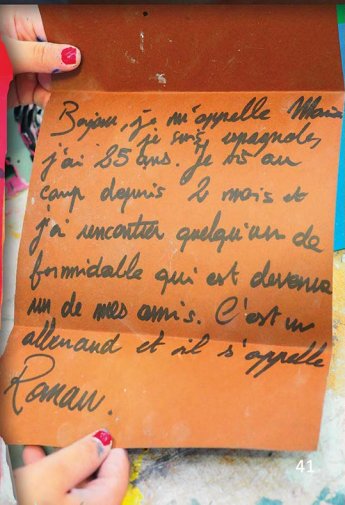 Bojour, je m'appelle Maria
je suis espagnole,
j'ai 25 ans. Je vis au
camp depuis 2 mois et
j'ai rencontrer quelqu'un de
formidable qui est devenu
un de mes amis. C'est un
allemand et il s'appelle
Roman.
41